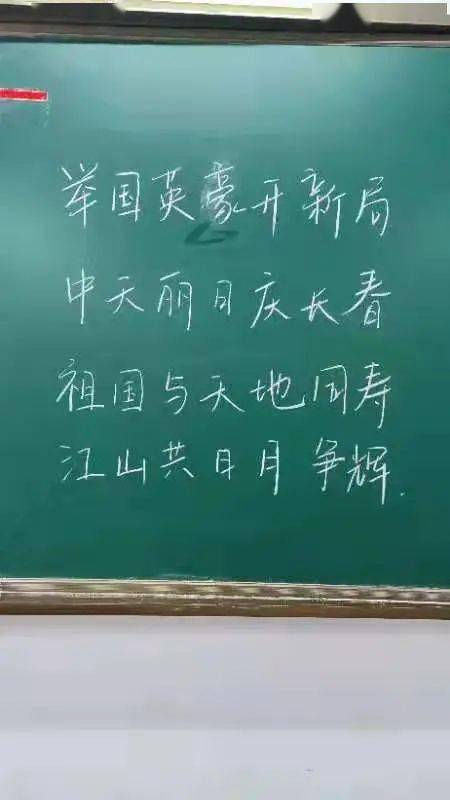 举国英豪开新局
中天丽日庆长春
祖国与天地同寿
江山共日月争辉.